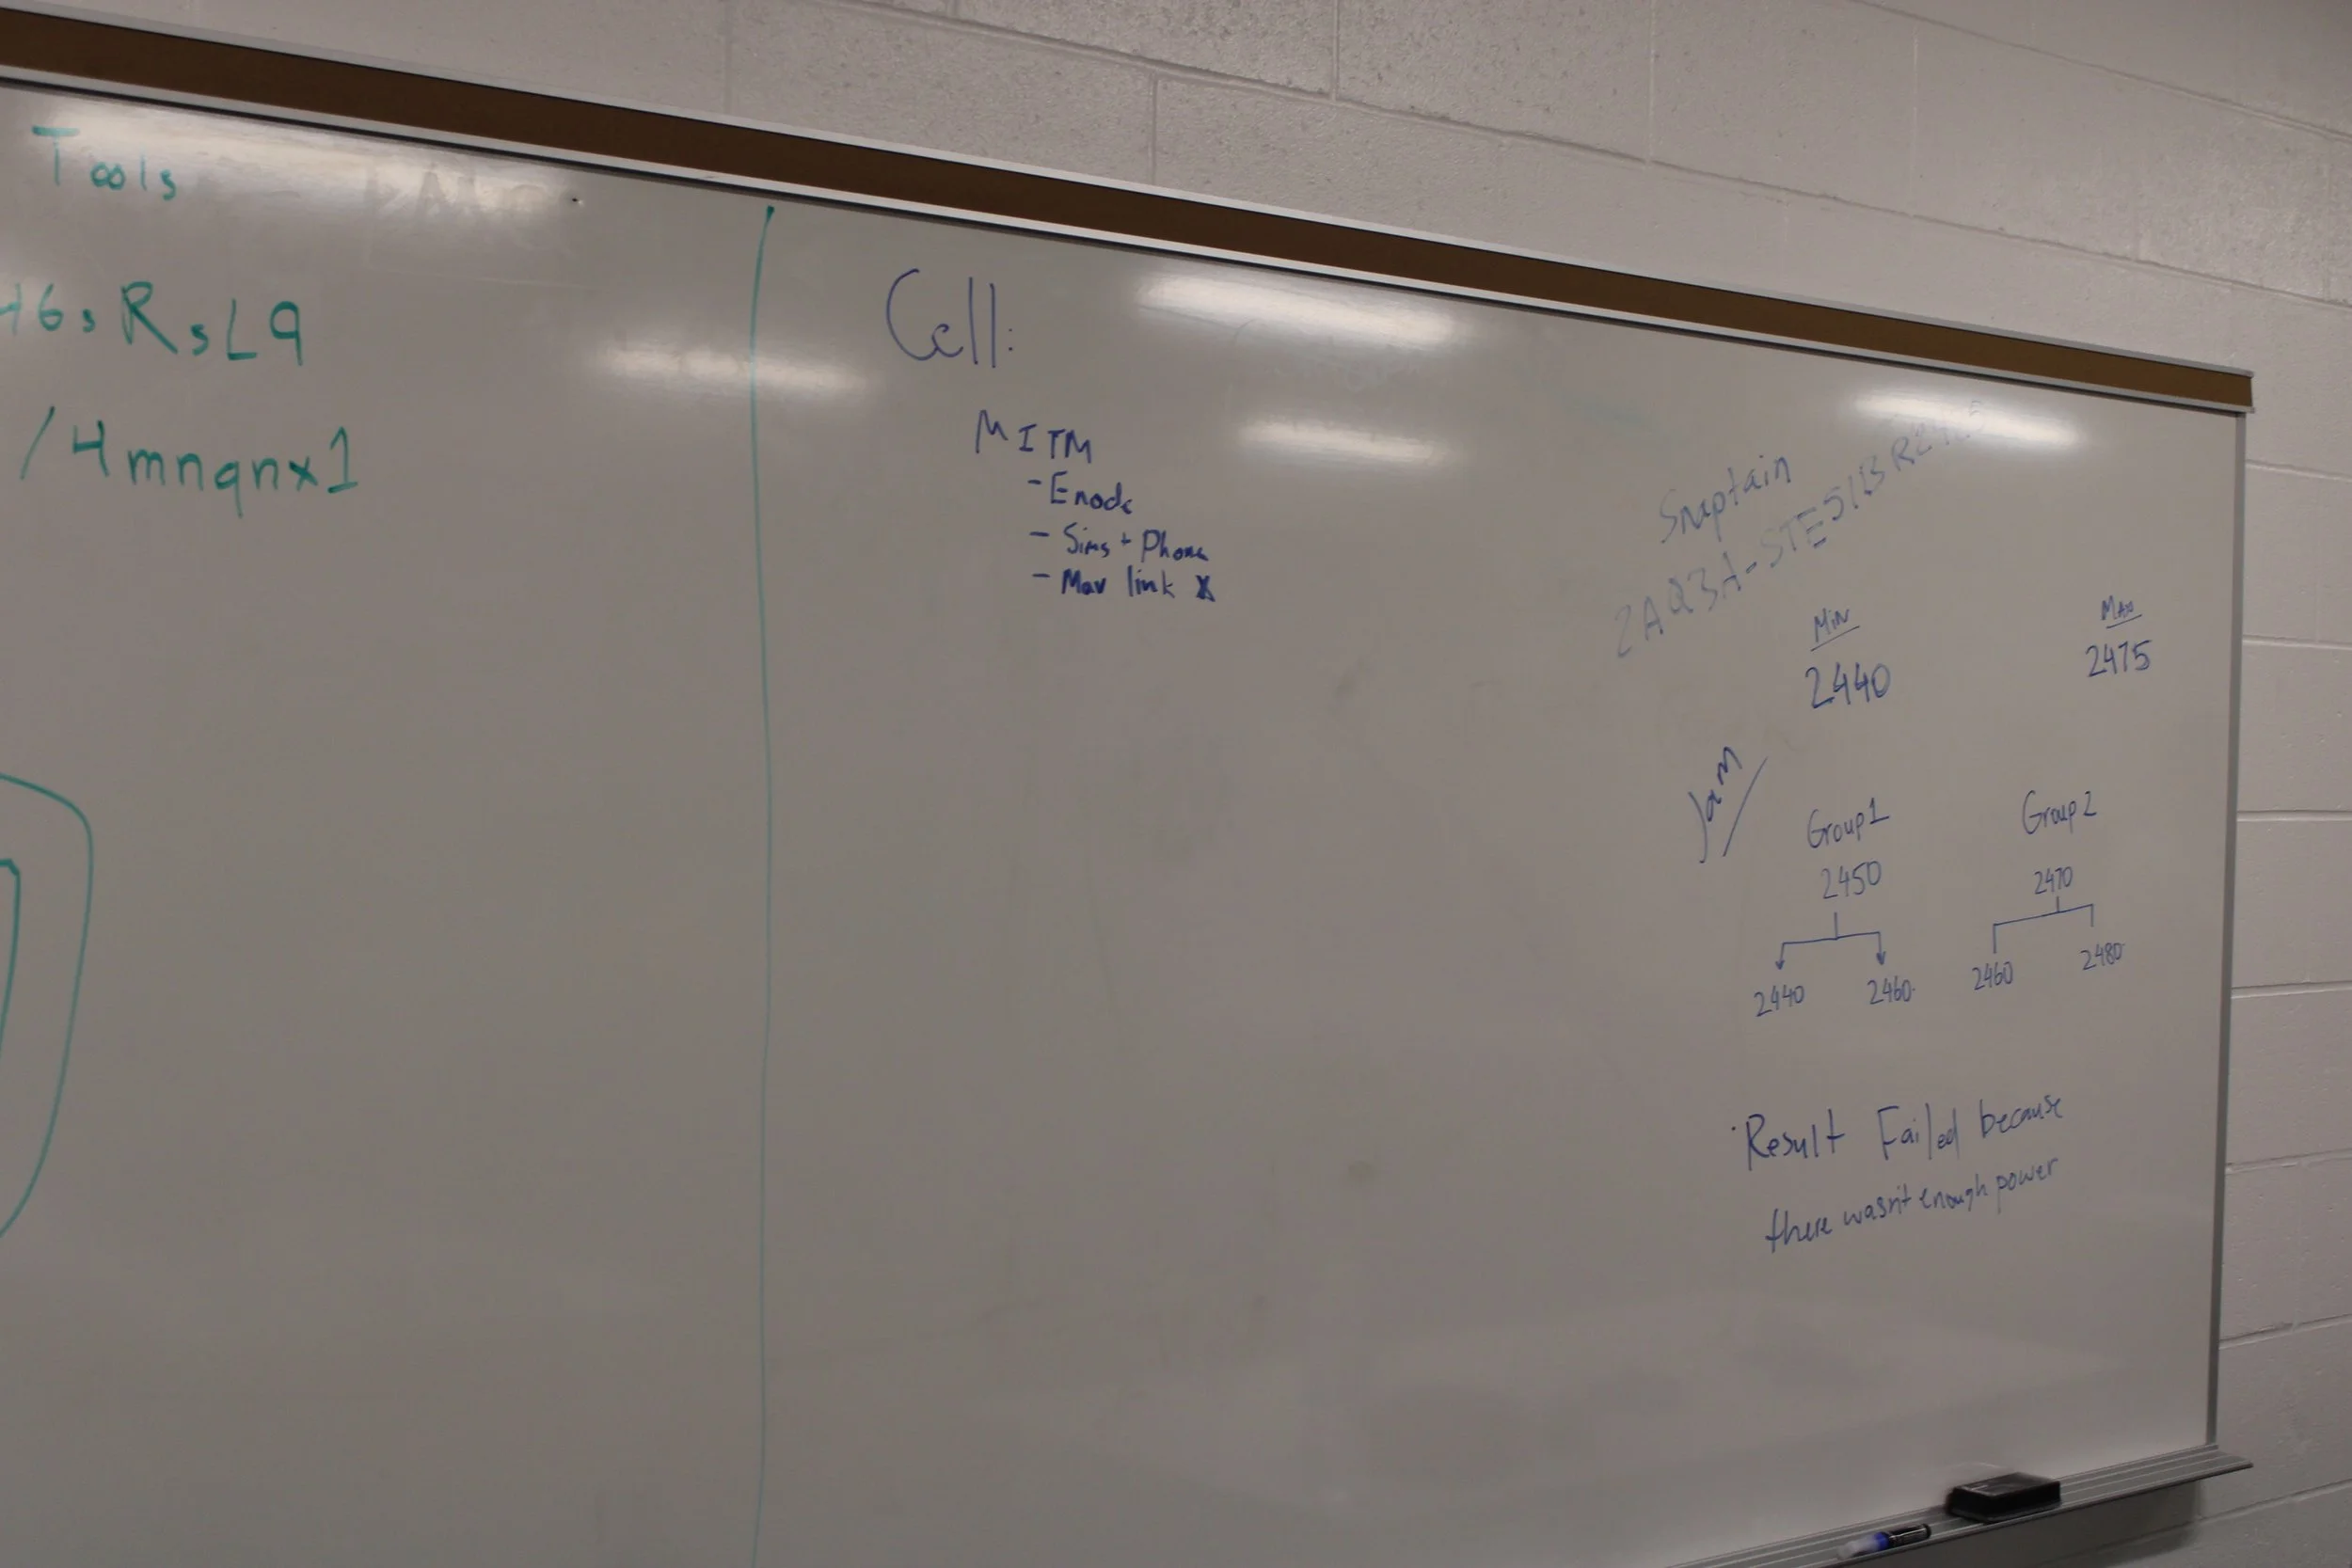 Tools
46sRsL9
/4mnqnx1
Cell:
MITM
- Enode
- Sims + Phone
- Mav link X
Snaptain
2AQ3A-STE51B
Min
2440
Max
2475
Jam
Group1
2450
2440
2460
Group2
2470
2460
2480
Result Failed because
there wasn't enough power